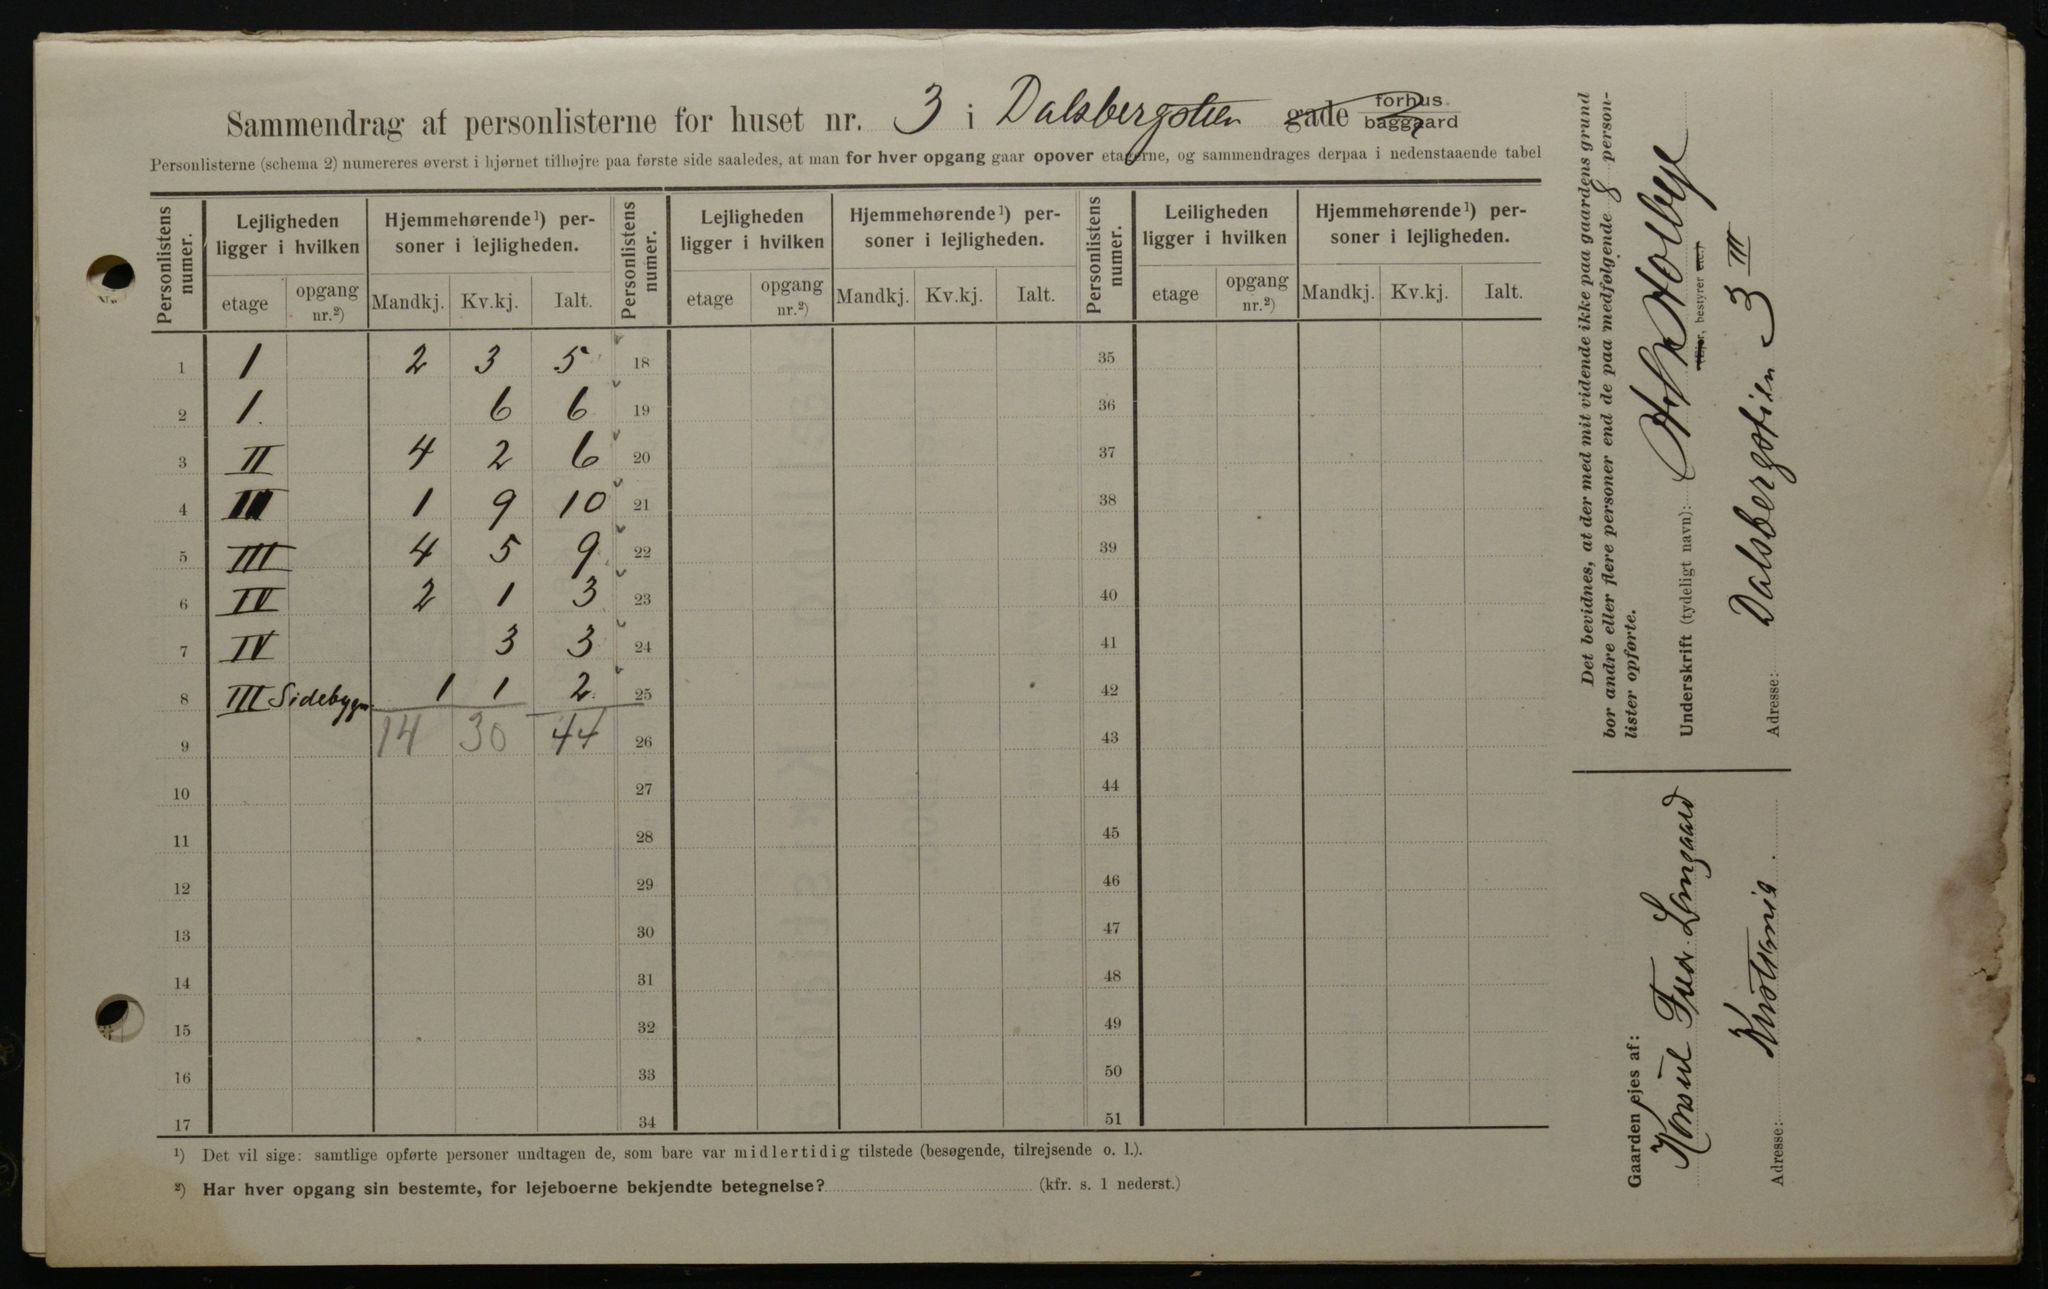 Sammendrag af personlisterne for huset nr. 3 i Dalsbergstien gade forhus baggaard
Personlisterne (schema 2) numereres øverst i hjørnet tilhøjre paa første side saaledes, at man for hver opgang gaar opover etagerne, og sammendrages derpaa i nedenstaaende tabel
Personlistens numer. Lejligheden ligger i hvilken Hjemmehørende¹) personer i lejligheden. Personlistens numer. Lejligheden ligger i hvilken Hjemmehørende¹) personer i lejligheden. Personlistens numer. Leiligheden ligger i hvilken Hjemmehørende¹) personer i lejligheden.
etage opgang nr.²) Mandkj. Kv.kj. Ialt. etage opgang nr.²) Mandkj. Kv.kj. Ialt. etage opgang nr.²) Mandkj. Kv.kj. Ialt.
1 1 2 3 5 18 35
2 1. 6 6 19 36
3 II 4 2 6 20 37
4 1 9 10 21 38
5 III 4 5 9 22 39
6 IV 2 1 3 23 40
7 IV 3 3 24 41
8 III Sidebygn. 1 1 2 25 42
9 14 30 44 26 43
10 27 44
11 28 45
12 29 46
13 30 47
14 31 48
15 32 49
16 33 50
17 34 51
¹) Det vil sige: samtlige opførte personer undtagen de, som bare var midlertidig tilstede (besøgende, tilrejsende o. l.).
²) Har hver opgang sin bestemte, for lejeboerne bekjendte betegnelse? (kfr. s. 1 nederst.)
Det bevidnes, at der med mit vidende ikke paa gaardens grund
bor andre eller flere personer end de paa medfølgende 8 person-
lister opførte.
Underskrift (tydeligt navn): Holbye
(Ejer, bestyrer etc.)
Adresse: Dalsbergstien 3 III
Gaarden ejes af:
Konsul Fred. Langaard
Adresse: Kristiania.